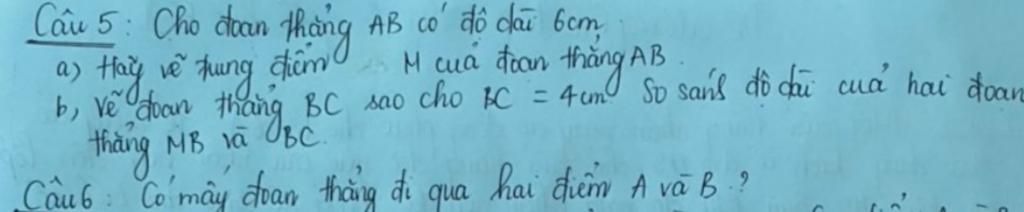 Câu 5: Cho đoan thẳng AB có độ dài 6cm
a) Hãy vẽ trung điểm M của đoan thẳng AB.
b, Vẽ đoan thẳng BC sao cho BC = 4cm So sánh độ dài của hai đoan
thẳng MB và BC.
Câu 6: Có mấy đoan thẳng đi qua hai điểm A và B?